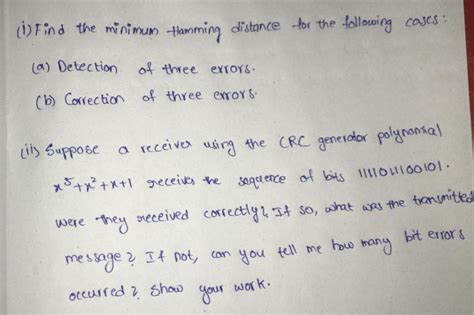 (i) Find the minimum Hamming distance for the following cases:
(a) Detection of three errors.
(b) Correction of three errors.
(ii) Suppose a receiver using the CRC generator polynomial
x⁵+x²+x+1 receives the sequence of bits 111101100101.
Were they received correctly? If so, what was the transmitted
message? If not, can you tell me how many bit errors
occurred? Show your work.